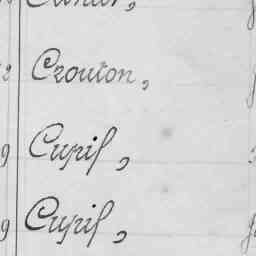 Crouton,
Cupif,
Cupif,